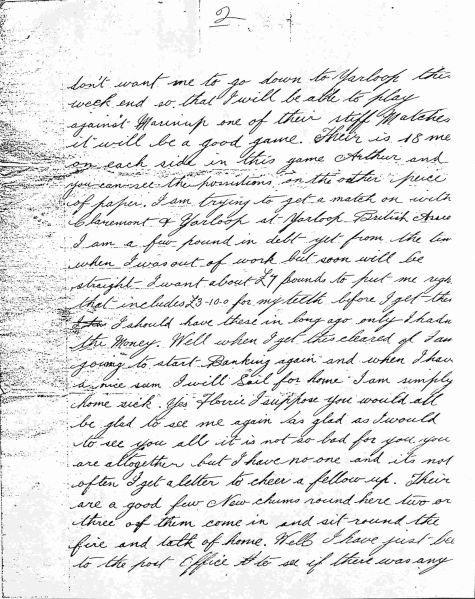 2
don't want me to go down to Yarloop the
week end so that I will be able to play
against Marinup one of their stiff Matches
it will be a good game. Their is 18 me
on each side in this game Arthur and
you can see the possitions on the other peice
of paper. I am trying to get a match on with
Claremont & Yarloop at Yarloop British Asso
I am a few pound in debt yet from the
when I was out of work but soon will be
straight I want about £7 pounds to put me
that includes £3-10-0 for my teeth before I get
I should have these in long ago only I hadn
the Money. Well when I get this cleared of I am
going to start Banking again and when I hav
a nice sum I will Sail for home I am simply
home sick. Yes Florrie I suppose you would all
be glad to see me again as glad as I would
to see you all it is not so bad for you you
are altogether but I have no one and its not
often I get a letter to cheer a fellow up. Their
are a good few New chums round here two or
three of them come in and sit round the
fire and talk of home. Well I have just be
to the post Office to see if there was any